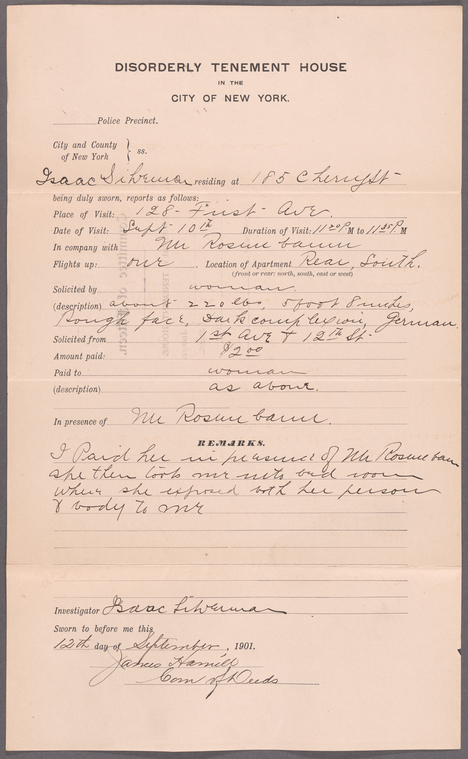 DISORDERLY TENEMENT HOUSE
IN THE
CITY OF NEW YORK.
Police Precinct.
City and County
of New York } ss.
Isaac Silverman residing at 185 Cherry St
being duly sworn, reports as follows:
Place of Visit: 128 - First Ave.
Date of Visit: Sept 10th Duration of Visit: 11 20 P M to 11 35 P. M
In company with Mr Rosenebaum
Flights up: one Location of Apartment Rear, South.
(front or rear: north, south, east or west)
Solicited by woman.
(description) about 220 lbs, 5 foot 8 inches,
Rough face, Dark complexion, German.
Solicited from 1st Ave + 12th St
Amount paid: $2.00
Paid to woman
(description) as above.
In presence of Mr Rosenebaum.
REMARKS.
I Paid her in presence of Mr Rosenebaum
she then took me into bed room
where she exposed both her person
& body to me
Investigator Isaac Silverman
Sworn to before me this
12th day of September, 1901.
James Hamill
Com of Deeds